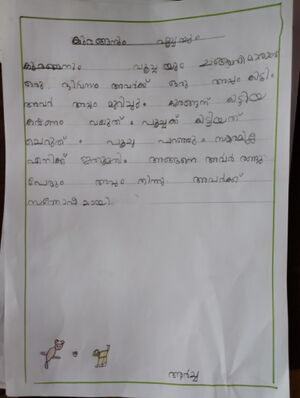 കുരങ്ങനും പൂച്ചയും
കുരങ്ങനും പൂച്ച യും ചങ്ങാതിമാരാണ്
ഒരു ദിവസം അവർക്ക് ഒരു അപ്പം കിട്ടി.
അവർ അപ്പം മുറിച്ചു. കുരങ്ങന് കിട്ടിയ
കഷണം വലുത്. പൂച്ചക്ക് കിട്ടിയത്
ചെറുത്. പൂച്ച പറഞ്ഞു. സാരമില്ല
എനിക്ക് ഇതുമതി. അങ്ങനെ അവർ രണ്ടു
പേരും അപ്പം തിന്നു. അവർക്ക്
സന്തോഷമായി.
അർച്ച